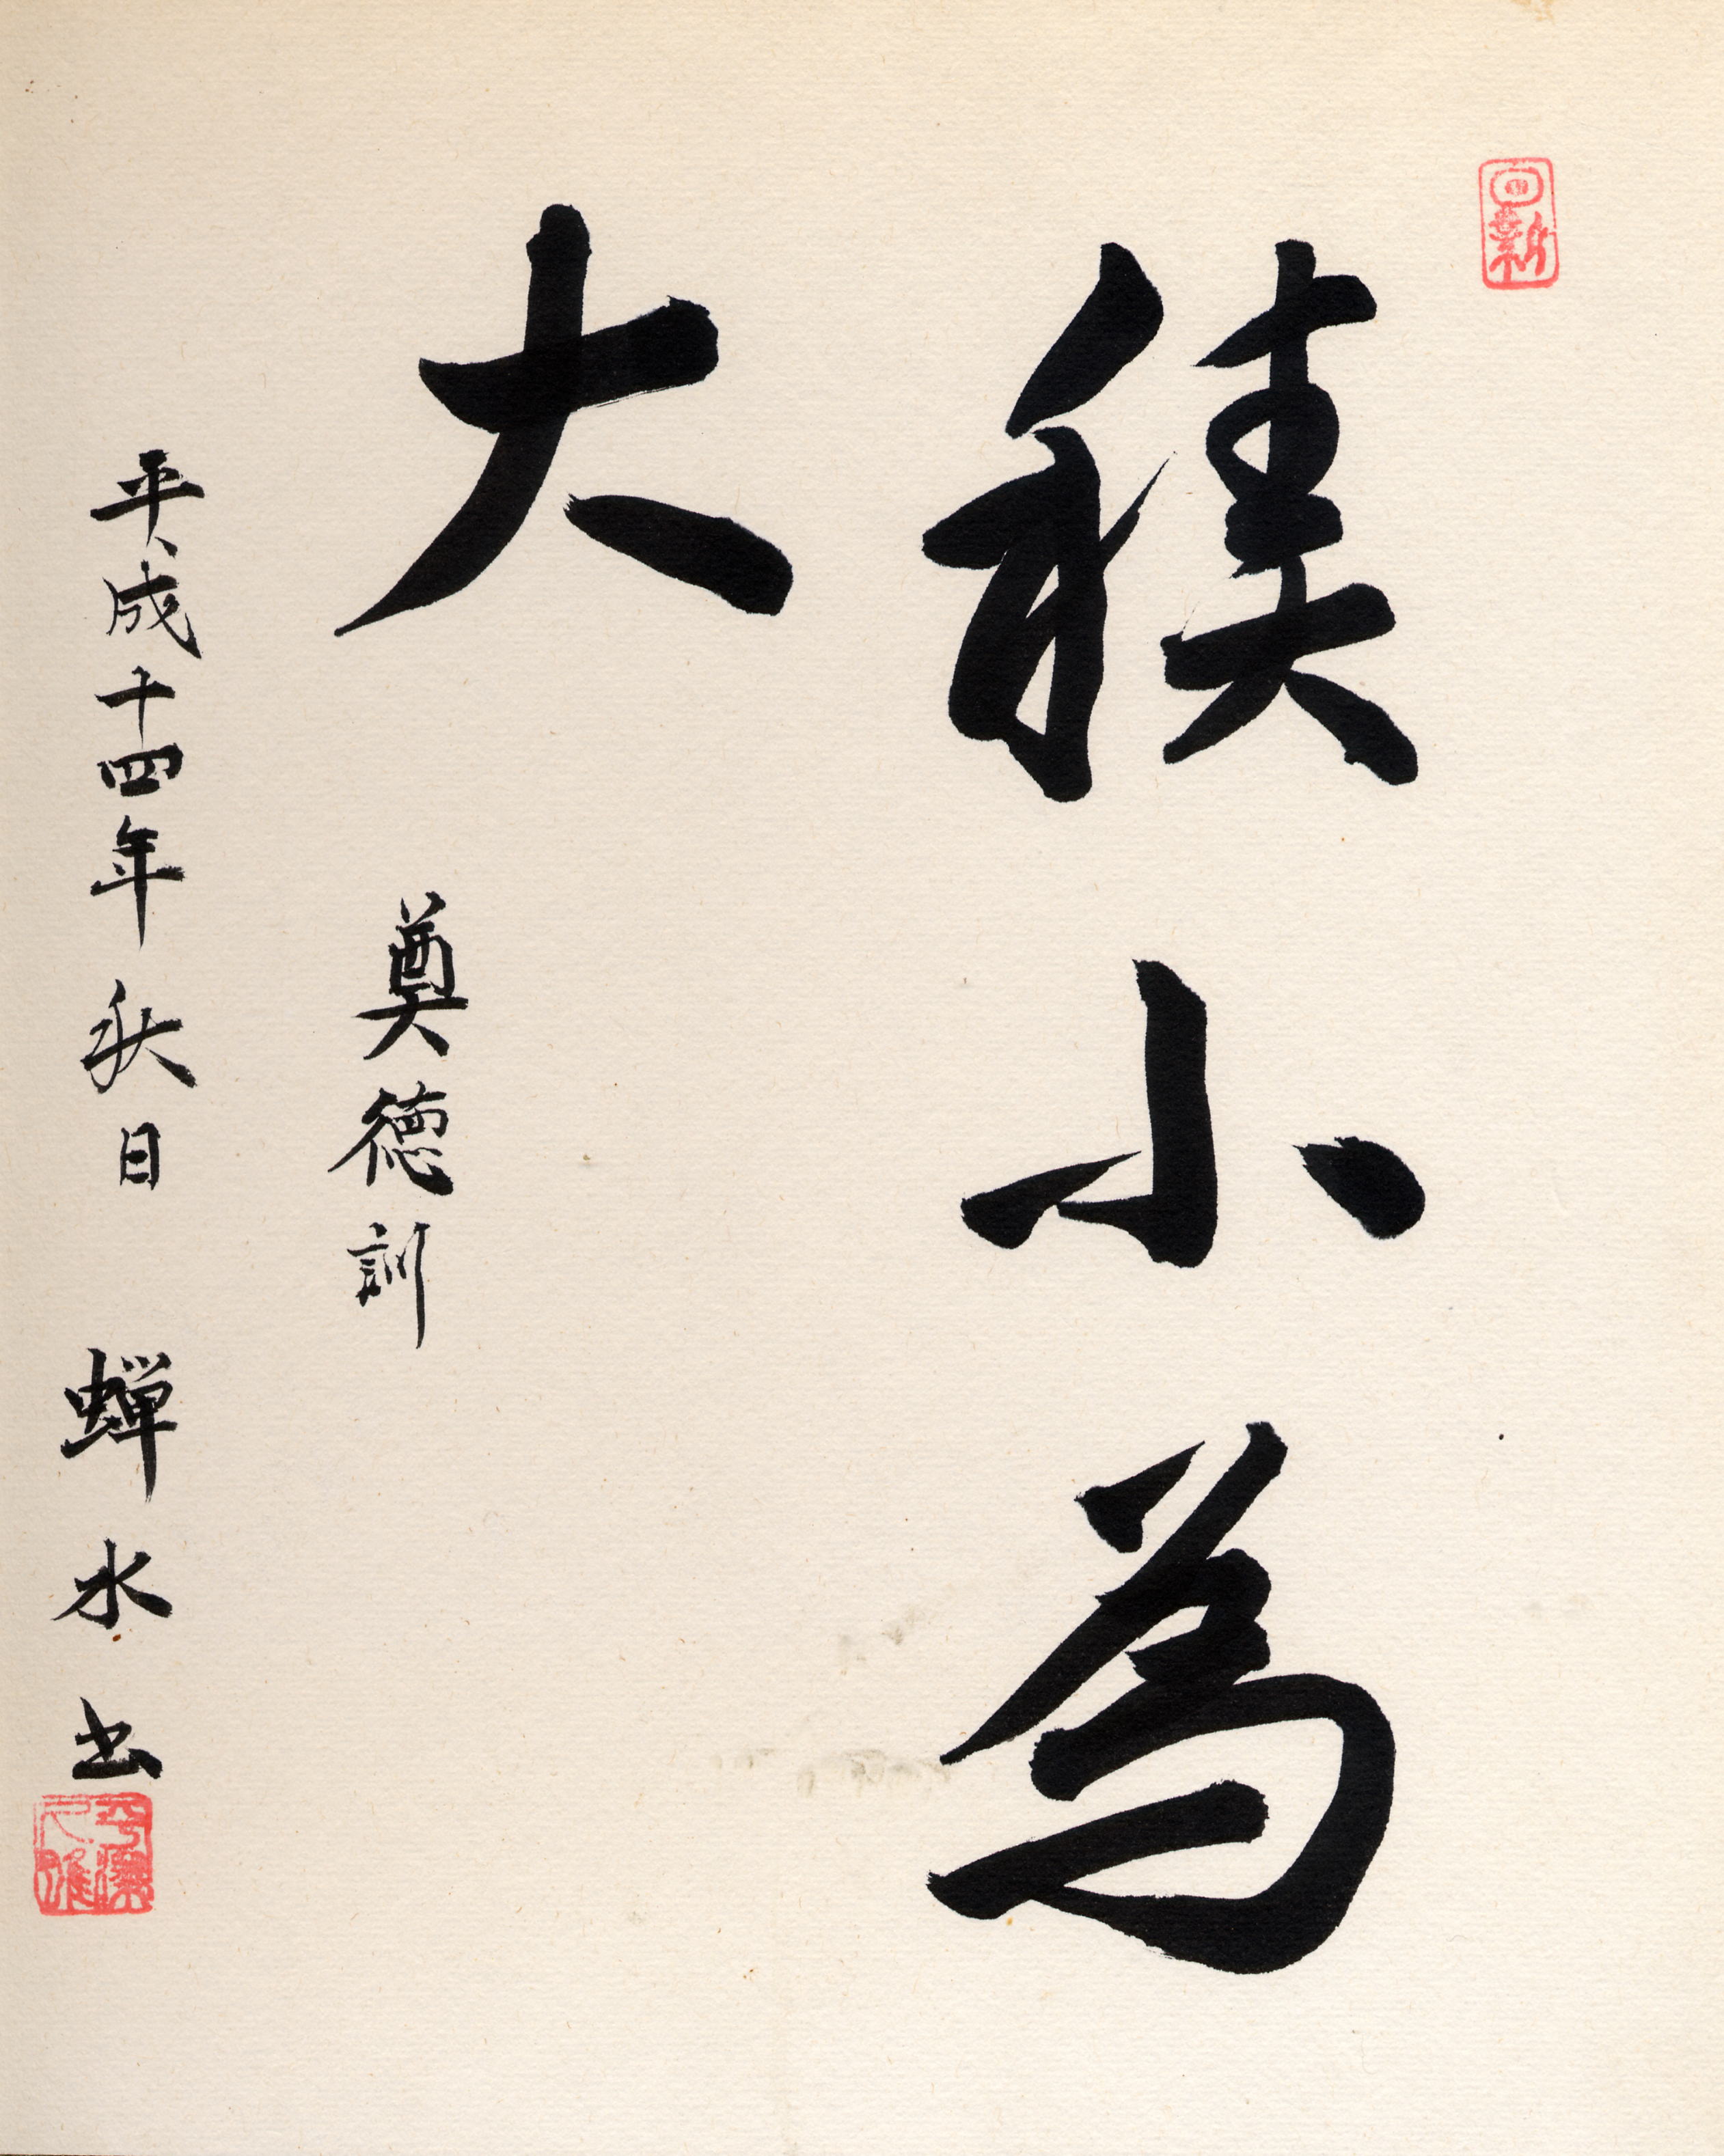 日新
積小為
大
尊徳訓
平成十四年秋日 蝉水书